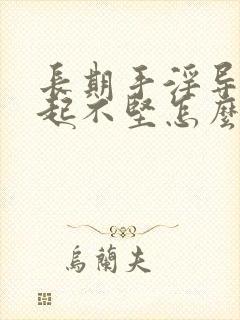 長期手淫导
起不堅怎麼
烏蘭夫